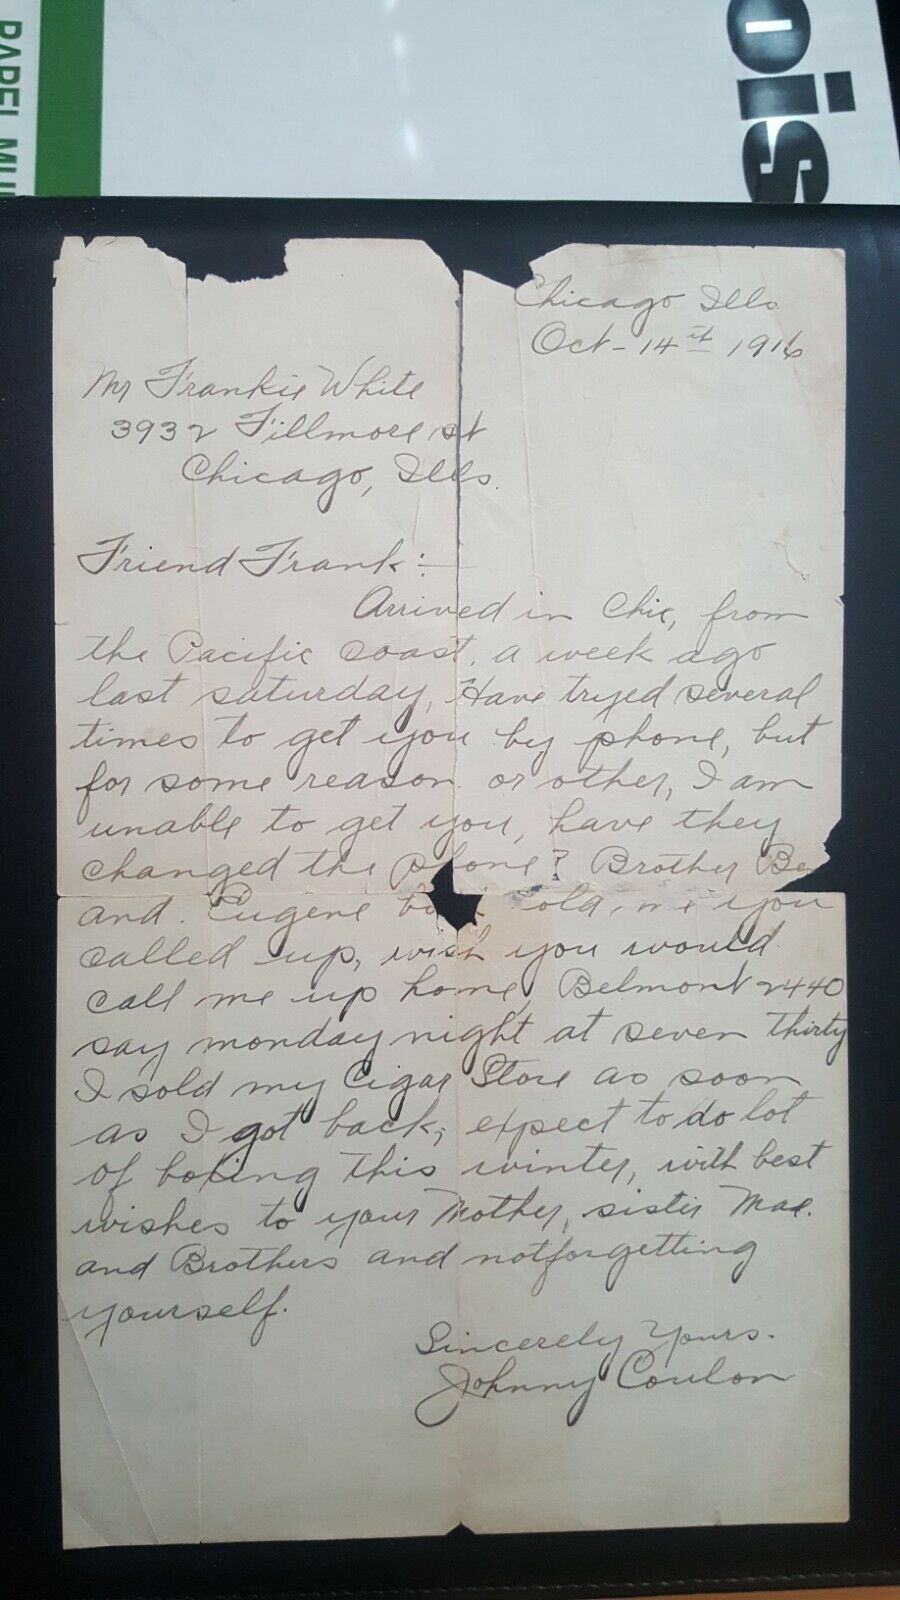 PAPEL MU
ois
Chicago Ills.
Oct - 14th 1916
Mr Frankie White
3932 Fillmore st
Chicago, Ills.
Friend Frank:-
Arrived in Chic, from
the Pacific coast, a week ago
last saturday, Have tryed several
times to get you by phone, but
for some reason or other, I am
unable to get you, have they
changed the phone? Brother
and Eugene me you
called up, wish you would
call me up home, Belmont 2440
say monday night at seven thirty
I sold my Cigar Store as soon
as I got back, expect to do lot
of boxing this winter, with best
wishes to your Mother, sister Mae.
and Brothers and notforgetting
yourself.
Sincerely Yours.
Johnny Coulon